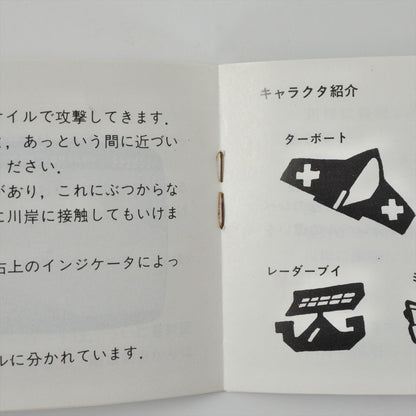 イルで攻撃してきます．
，あっという間に近づい
ください．
があり，これにぶつからな
に川岸に接触してもいけま
右上のインジケータによっ
ルに分かれています．
キャラクタ紹介
ターボート
レーダーブイ
ミ